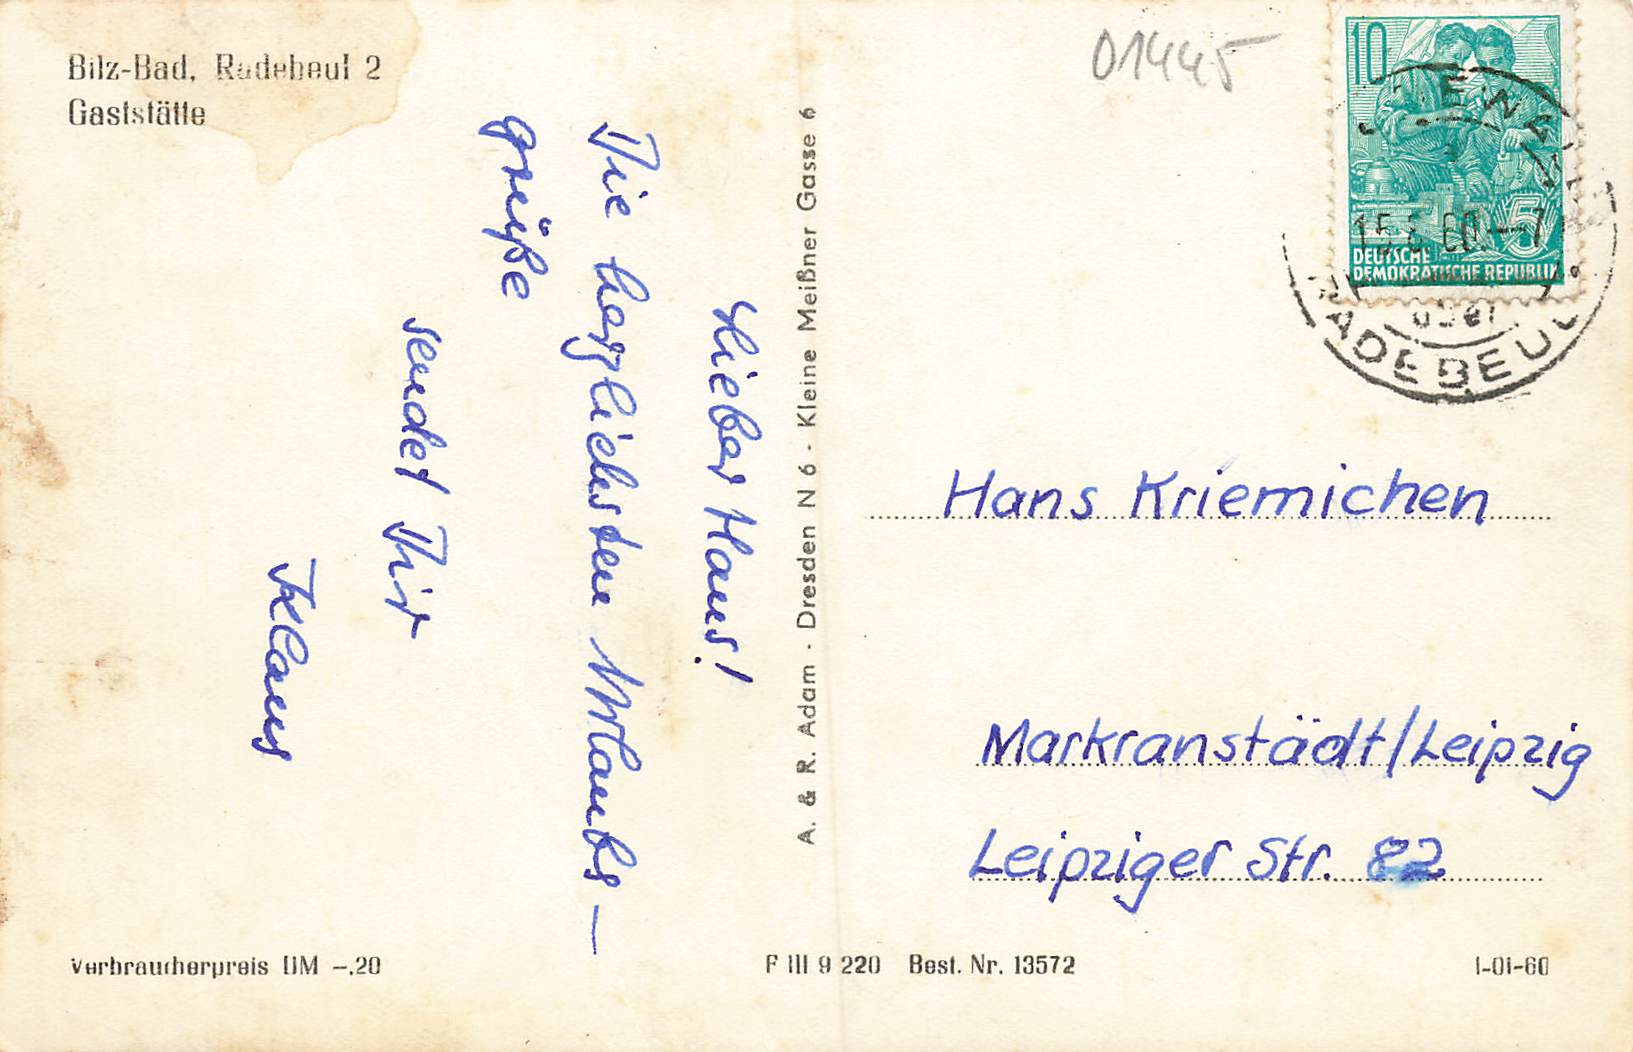 Bilz-Bad, Radebeul 2
Gaststätte
Lieber Hans!
Die herzlichsten Urlaubs-
grüße
sendet Dir
Klaus
A. & R. Adam · Dresden N 6 · Kleine Meißner Gasse 6
01445
10
5
DEUTSCHE
DEMOKRATISCHE REPUBLIK
RADEBEUL
Hans Kriemichen
Markranstädt/Leipzig
Leipziger Str. 82
Verbraucherpreis DM -.20
F III 9 220 Best. Nr. 13572
1-01-60